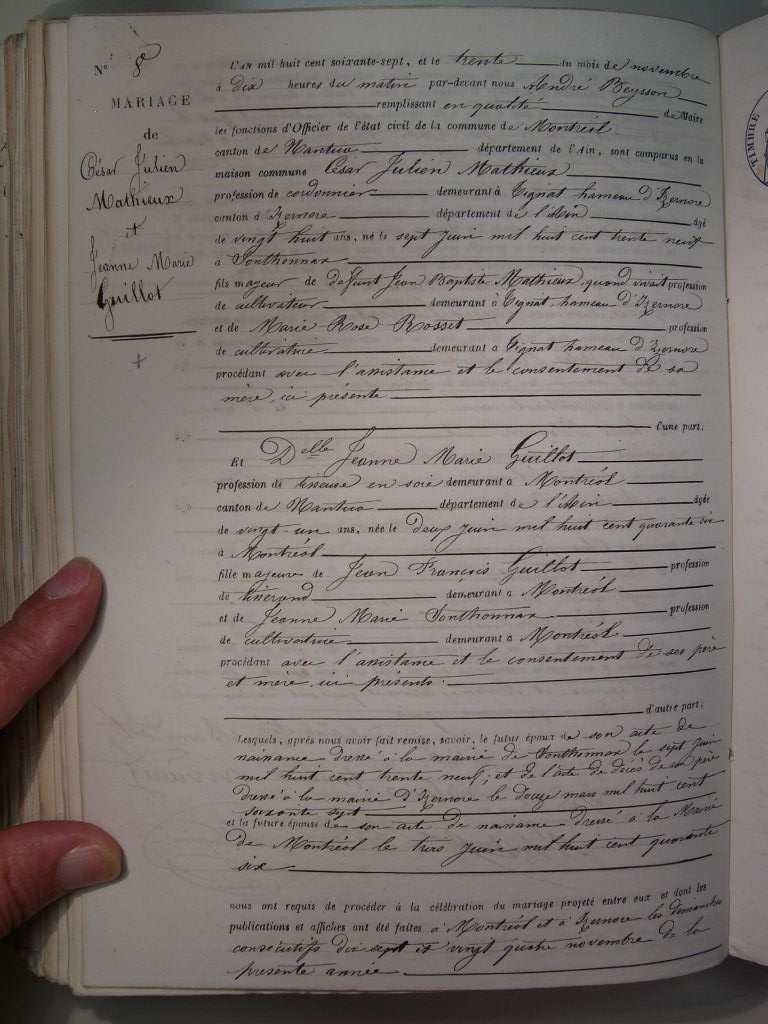 N° 8e
MARIAGE
de
César Julien
Mathieux
et
Jeanne Marie
Guillot
L'AN mil huit cent soixante-sept, et le trente du mois de novembre
à Dix heures du matin par-devant nous André Beysson
remplissant en qualité de Maire
les fonctions d'Officier de l'état civil de la commune de Montréal
canton de Nantua département de l'Ain, sont comparus en la
maison commune César Julien Mathieux
profession de cordonnier demeurant à Tignat hameau d'Izernore
canton d'Izernore département de l'Ain âgé
de vingt huit ans, né le sept Juin mil huit cent trente neuf
à Sonthonnax
fils majeur de défunt Jean Baptiste Mathieux, quand vivait profession
de cultivateur demeurant à Tignat, hameau d'Izernore
et de Marie Rose Rosset profession
de cultivatrice demeurant à Tignat hameau d'Izernore
procédant avec l'assistance et le consentement de sa
mère, ici présente
d'une part;
Et Delle Jeanne Marie Guillot
profession de tisseuse en soie demeurant à Montréal
canton de Nantua département de l'Ain âgée
de vingt-un ans, née le Deux Juin mil huit cent quarante six
à Montréal
fille majeure de Jean François Guillot profession
de tisserand demeurant à Montréal
et de Jeanne Marie Sonthonnax profession
de cultivatrice demeurant à Montréal
procédant avec l'assistance et le consentement de ses père
et mère, ici présents.
d'autre part;
Lesquels, après nous avoir fait remise, savoir, le futur époux de son acte de
naissance dressé à la mairie de Sonthonnax le sept Juin
mil huit cent trente neuf; et de l'acte de décès de son père
dressé à la mairie d'Izernore le douze mars mil huit cent
soixante sept
et la future épouse de son acte de naissance dressé à la Mairie
de Montréal le trois Juin mil huit cent quarante
six
nous ont requis de procéder à la célébration du mariage projeté entre eux et dont les
publications et affiches ont été faites à Montréal et à Izernore les dimanches
consécutifs dix sept et vingt quatre novembre de la
présente année
TIMBRE